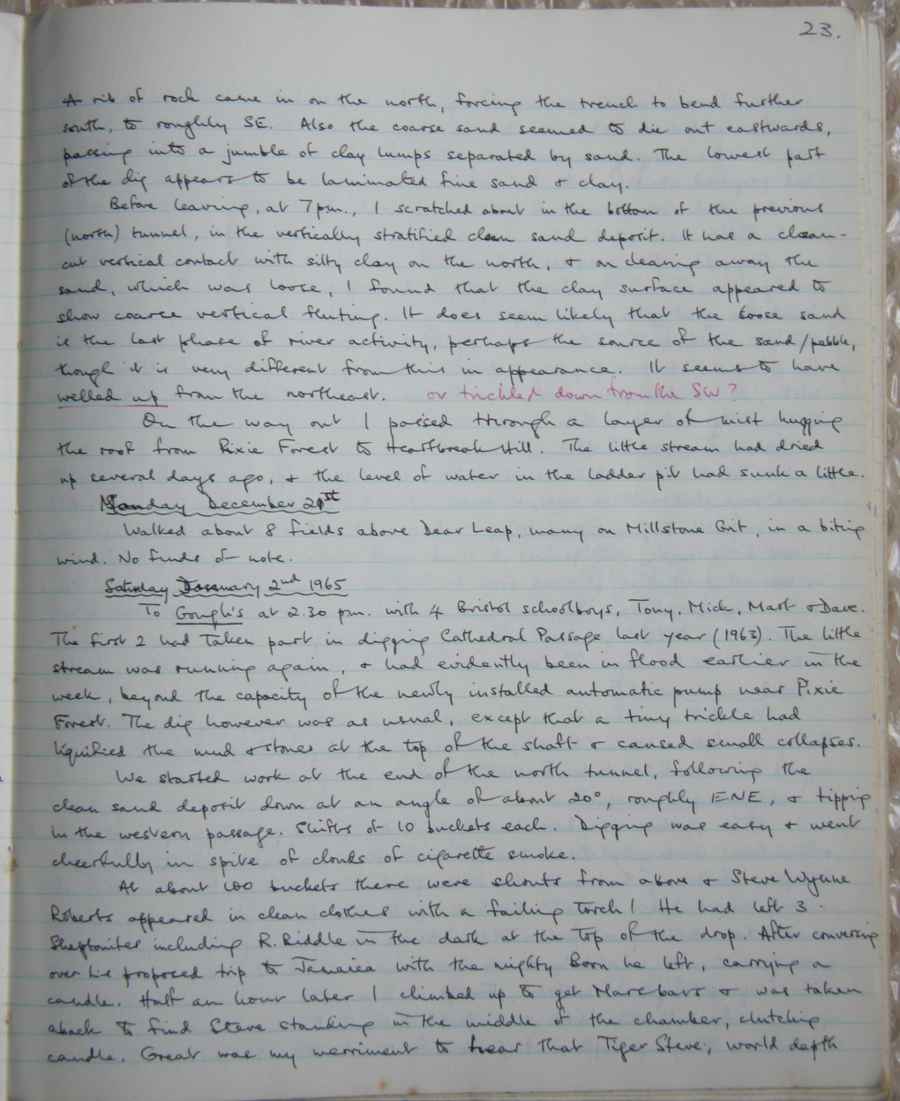 23.
A rib of rock came in on the north, forcing the trench to bend further
south, to roughly SE. Also the coarse sand seemed to die out eastwards,
passing into a jumble of clay lumps separated by sand. The lowest part
of the dig appears to be laminated fine sand & clay.
Before leaving, at 7pm., I scratched about in the bottom of the previous
(north) tunnel, in the vertically stratified clean sand deposit. It has a clean-
cut vertical contact with silty clay on the north, & on clearing away the
sand, which was loose, I found that the clay surface appeared to
show coarse vertical fluting. It does seem likely that the loose sand
is the last phase of river activity, perhaps the source of the sand/pebble,
though it is very different from this in appearance. It seems to have
welled up from the northeast. or trickled down from the SW?
On the way out I passed through a layer of mist hugging
the roof from Pixie Forest to Heartbreak Hill. The little stream had dried
up several days ago, & the level of water in the ladder pit had sunk a little.
Monday December 21st
Walked about 8 fields above Dear Leap, many on Millstone Grit, in a biting
wind. No finds of note.
Saturday January 2nd 1965
To Gough's at 2.30 pm. with 4 Bristol schoolboys, Tony, Mick, Mart & Dave.
The first 2 had taken part in digging Cathedral Passage last year (1963). The little
stream was running again, & had evidently been in flood earlier in the
week, beyond the capacity of the newly installed automatic pump near Pixie
Forest. The dig however was as usual, except that a tiny trickle had
liquified the mud & stones at the top of the shaft & caused small collapses.
We started work at the end of the north tunnel, following the
clean sand deposit down at an angle of about 20°, roughly ENE, & tipping
in the western passage. Shifts of 10 buckets each. Digging was easy & went
cheerfully in spite of clouds of cigarette smoke.
At about 100 buckets there were shouts from above & Steve Wynne
Roberts appeared in clean clothes with a failing torch! He had left 3
Sheptonites including R. Riddle in the dark at the top of the drop. After conversing
over his proposed trip to Jamaica with the mighty Boon he left, carrying a
candle. Half an hour later I climbed up to get Marsbars & was taken
aback to find Steve standing in the middle of the chamber, clutching
candle. Great was my merriment to hear that Tiger Steve, world depth